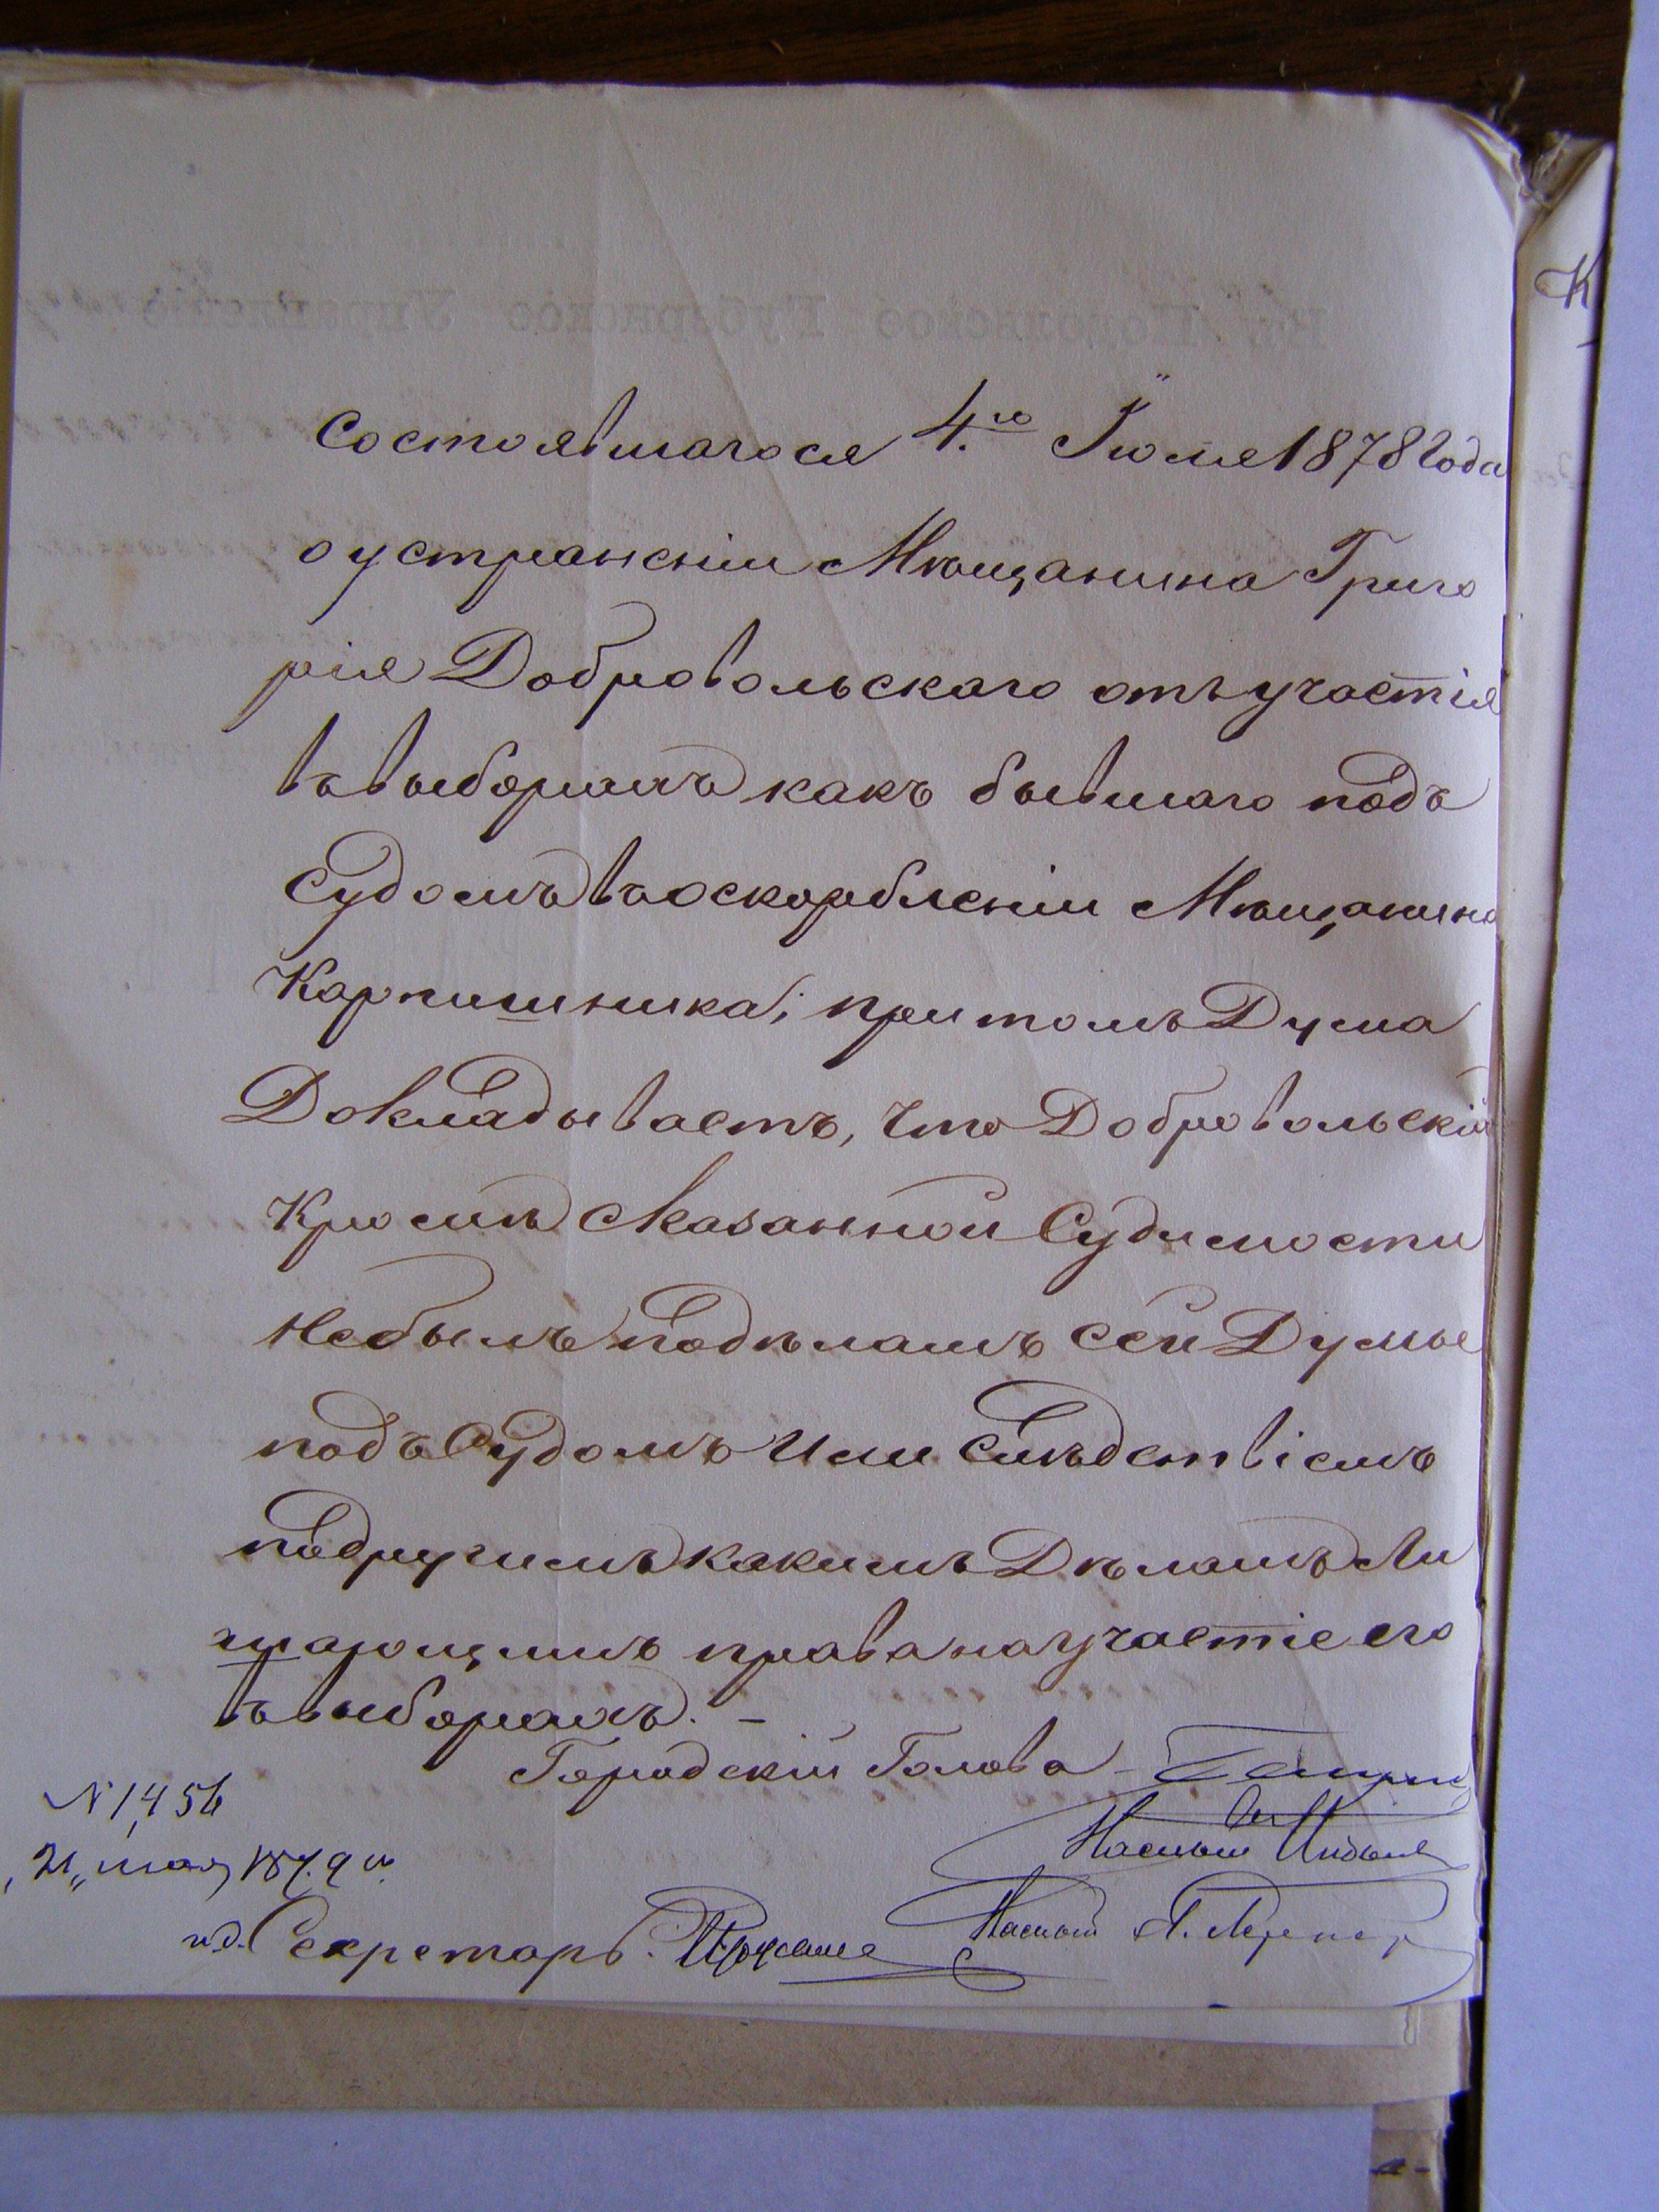 состоявшагося 4.го Іюля 1878 года
о устраненіи Мѣщанина Григо
рія Добровольскаго отъ участія
въ выборахъ какъ бывшаго подъ
Судомъ въ оскорбленіи Мѣщанина
Карпишника; при томъ Дума
Докладываетъ, что Добровольскій
Кромѣ Сказанной Судимости
не былъ по дѣламъ сей Думы
подъ Судомъ или Слѣдствіемъ
по другимъ какимъ Дѣламъ Ли
шающимъ права на участіе его
въ выборахъ. –
Городскій Голова
№ 1,456
„21„ мая 1879 г.
и.д. Секретарь